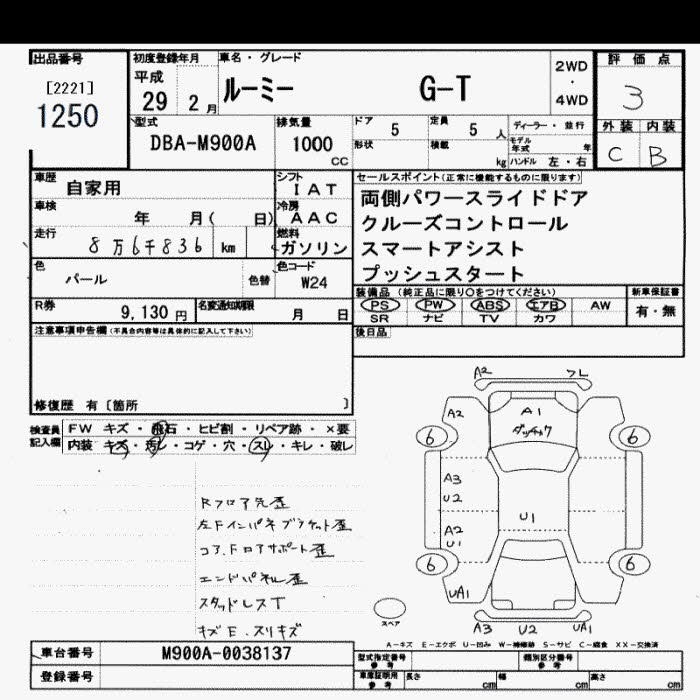 出品番号
[2221]
1250
初度登録年月
平成
29 2 月
車名・グレード
ルーミー G-T
2WD
・
4WD
評価点
3
外装 内装
C B
型式
DBA-M900A
排気量
1000
CC
ドア 5
定員 5 人
形状
積載 kg
ディーラー・並行
モデル年式 年
ハンドル 左・右
車歴
自家用
シフト
IAT
車検
年 月( 日)
冷房
AAC
走行
8万6千836 km
燃料
ガソリン
色
パール
色替
色コード
W24
セールスポイント(正常に機能するものに限ります)
両側パワースライドドア
クルーズコントロール
スマートアシスト
プッシュスタート
R券
9,130 円
名変通知期限
月 日
装備品(純正品に限り○をつけてください)
PS PW ABS エアB AW
SR ナビ TV カワ
新車保証書
有・無
注意事項申告欄(不具合内容等は具体的に記入して下さい)
後日品
修復歴 有〔箇所 〕
検査員記入欄
FW キズ・飛石・ヒビ割・リペア跡・×要
内装 キズ・汚レ・コゲ・穴・スレ・キレ・破レ
Rフロア先歪
左Fインパネブラケット歪
コア、Fロアサポート歪
エンドパネル歪
スタッドレスT
キズE.スリキズ
A2 フレ
A2
A1
ダッチャク
6 6
A3
U2
A2
U1
U1
6 6
UA1
スペア
A3 U2 UA1
A-キズ E-エクボ U-凹み W-補修跡 S-サビ C-腐食 XX-交換済
車台番号
M900A-0038137
登録番号
型式指定番号
参考
類別区分番号
参考
車庫証明用
参考
長さ cm
幅 cm
高さ cm